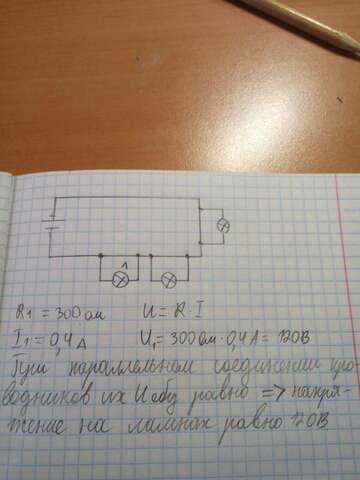 1
R₁ = 300 Ом U = R · I
I₁ = 0,4 А U₁ = 300 Ом · 0,4 А = 120 В
При параллельном соединении про-
водников их Uобу равно => напря-
жение на лампах равно 120 В.